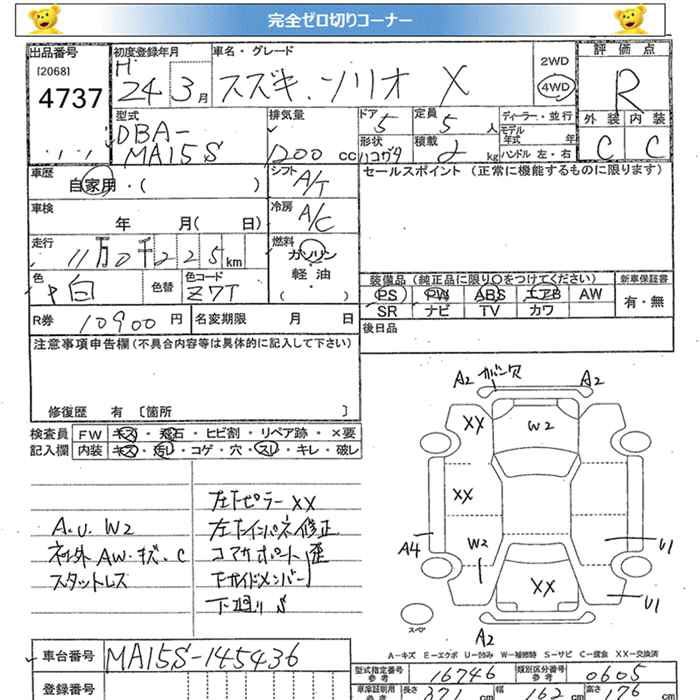 完全ゼロ切りコーナー
出品番号 初度登録年月 車名・グレード 2WD 評価点
[2068] H
4737 24 3月 スズキ.ソリオ X 4WD R
型式 排気量 ドア 5 定員 5人 ディーラー・並行 外装 内装
DBA- モデル年式 年
MA15S 1200 cc 形状 ハコグタ 積載 2 kg ハンドル 左・右 C C
車歴 自家用・( ) シフト A/T セールスポイント (正常に機能するものに限ります)
車検 年 月( 日) 冷房 A/C
走行 11万0千225km 燃料 ガソリン
軽油
( . )
色 白 色替 色コード Z7T 装備品 (純正品に限り〇をつけてください) 新車保証書
PS PW ABS エアB AW 有・無
SR ナビ TV カワ
R券 10900円 名変期限 月 日 後日品
注意事項申告欄 (不具合内容等は具体的に記入して下さい)
修復歴 有 〔箇所 〕
検査員 FW キズ・飛石・ヒビ割・リペア跡・×要
記入欄 内装 キズ・汚レ・コゲ・穴・スレ・キレ・破レ
A2 ガーニ欠 A2
XX W2
XX
A4 W2 U1
XX U1
スペア A2
左下ピラー XX
A.U. W2 左下インパネ修正
社外AW.キズ.C コアサポート歪
スタットレス 下サイドメンバー
下廻りS
A-キズ E-エクボ U-凹み W-補修跡 S-サビ C-腐食 XX-交換済
車台番号 MA15S-145436
型式指定番号 参考 16746 類別区分番号 参考 0605
登録番号
車庫証明用 参考 長さ 371 cm 幅 162 cm 高さ 176 cm